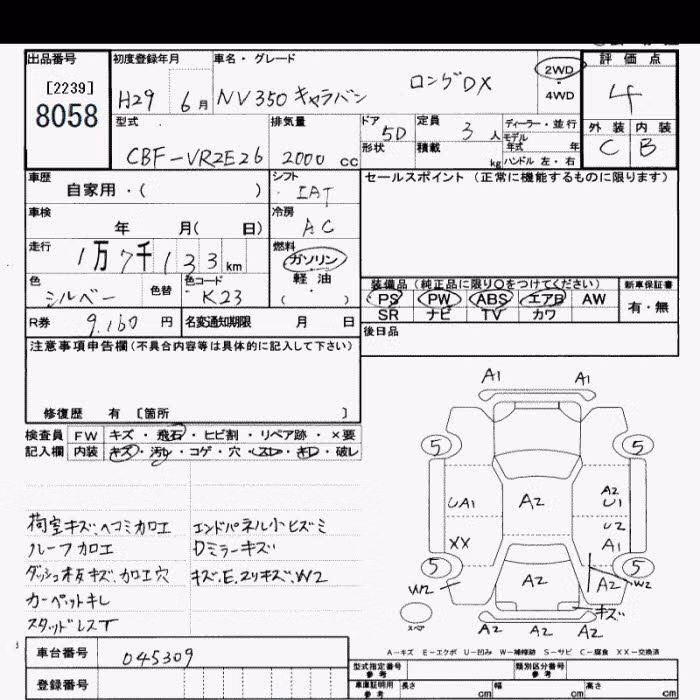 出品番号
[2239]
8058
初度登録年月
H29 6月
車名・グレード
NV350 キャラバン ロングDX
2WD
・
4WD
評価点
4
外装 内装
C B
型式
CBF-VR2E26
排気量
2000 cc
ドア
5D
形状
定員
3人
積載
kg
ディーラー・並行
モデル
年式 年
ハンドル 左・右
車歴
自家用・( )
シフト
IAT
セールスポイント (正常に機能するものに限ります)
車検
年 月( 日)
冷房
AC
走行
1万7千133km
燃料
ガソリン
軽油
・
( )
色
シルバー
色替
色コード
K23
装備品(純正品に限り○をつけてください)
PS PW ABS エアB AW
SR ナビ TV カワ
新車保証書
有・無
R券 9,160 円
名変通知期限 月 日
後日品
注意事項申告欄(不具合内容等は具体的に記入して下さい)
修復歴 有 〔箇所 〕
検査員 FW キズ・飛石・ヒビ割・リペア跡・×要
記入欄 内装 キズ・汚レ・コゲ・穴・スレ・キレ・破レ
荷室キズ、ヘコミカロエ
ルーフカロエ
ダッシュ板キズ、加工穴
カーペットキレ
スタッドレスT
エンドパネル小ヒズミ
Dミラーキズ
キズ、E、ヌリキズ、W2
A1 A1
5 5
UA1 A2 A2
U1
U2
XX A1
5 5
W2 A2 A2 W2
キズ
スペア
A2 A2 A2
A-キズ E-エクボ U-凹み W-補修跡 S-サビ C-腐食 XX-交換済
車台番号 045309
登録番号
型式指定番号
参考
類別区分番号
参考
車庫証明用
参考
長さ cm 幅 cm 高さ cm